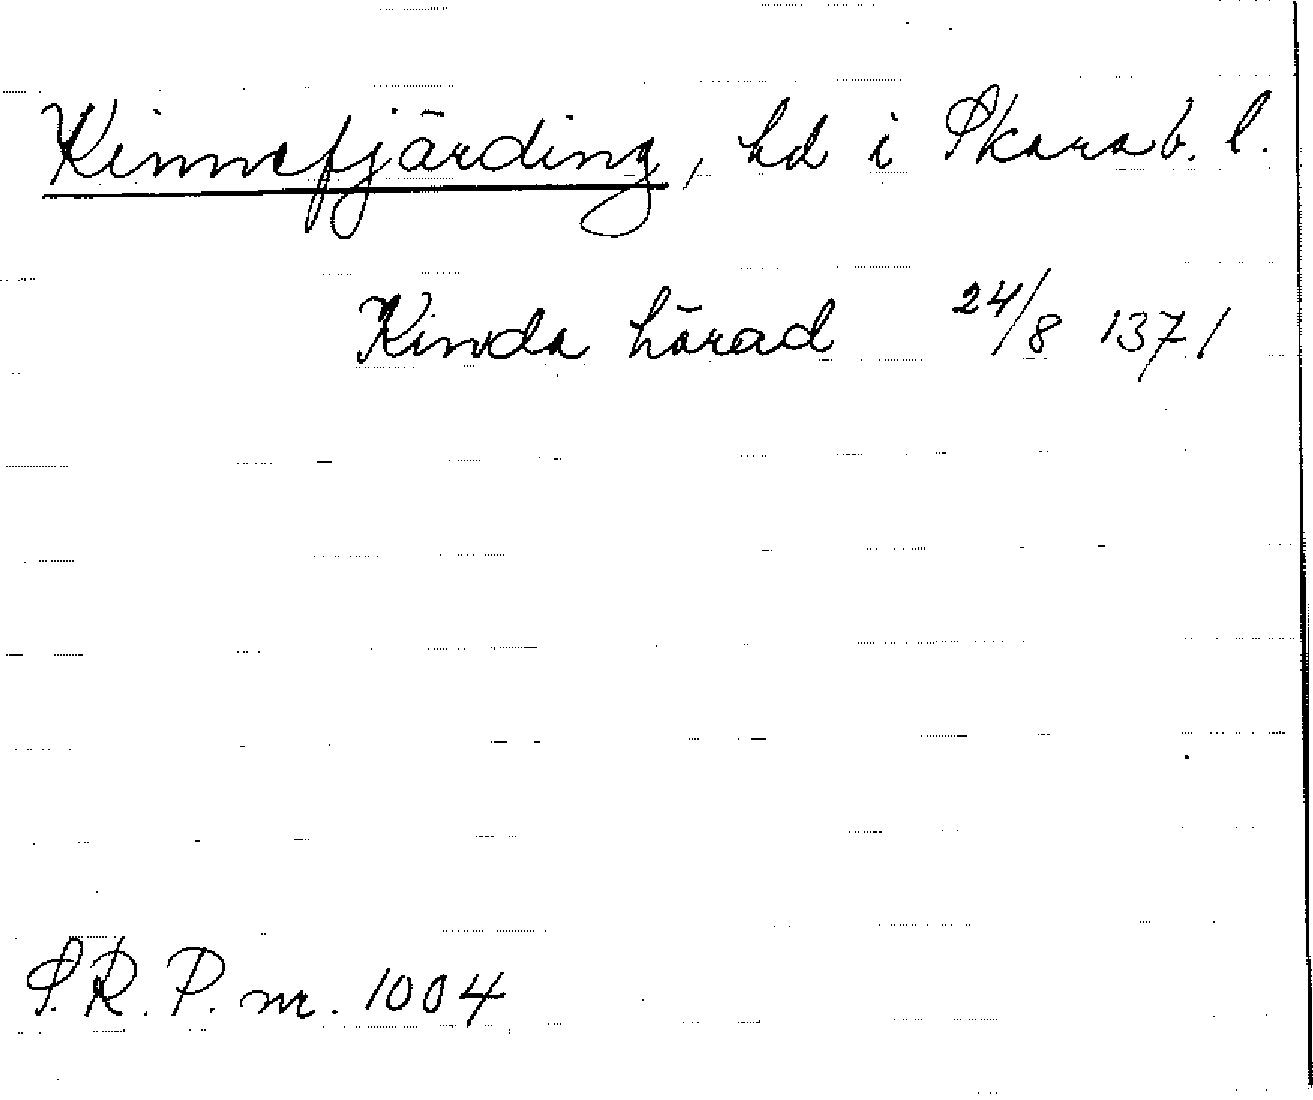 Kinnefjärding, hd i Skarab. l.
Kinda härad 24/8 1371
S.R.P. nr. 1004